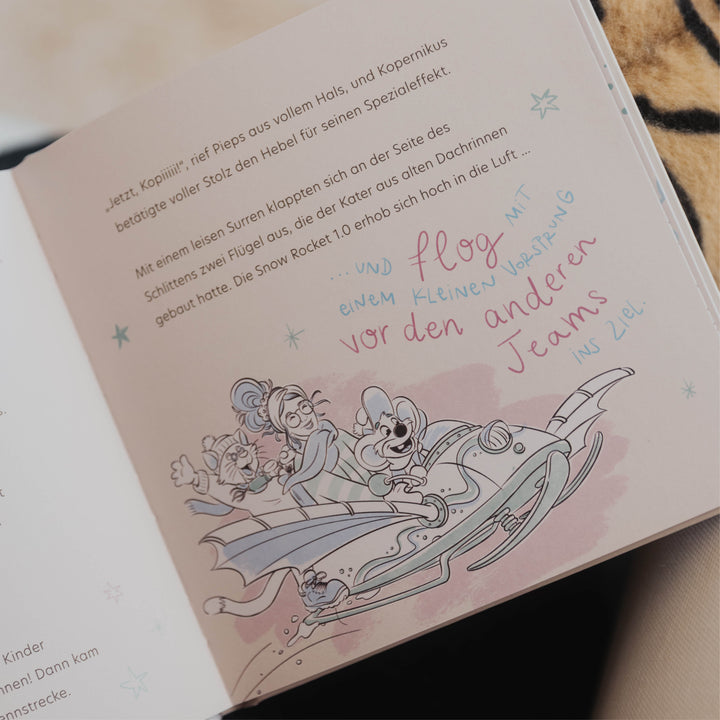 Kinder
nnen! Dann kam
ennstrecke.
„Jetzt, Kopiiiii!“, rief Pieps aus vollem Hals, und Kopernikus
betätigte voller Stolz den Hebel für seinen Spezialeffekt.
Mit einem leisen Surren klappten sich an der Seite des
Schlittens zwei Flügel aus, die der Kater aus alten Dachrinnen
gebaut hatte. Die Snow Rocket 1.0 erhob sich hoch in die Luft ...
... UND flog MIT
EINEM KLEINEN VORSPRUNG
vor den anderen
Teams
INS ZIEL.